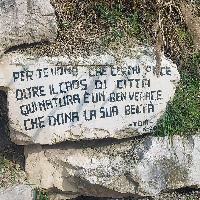 PER TE UOMO CHE CERCHI PACE
OLTRE IL CAOS DI CITTÀ
QUI NATURA È UN BEN VERACE
CHE DONA LA SUA BELTÀ